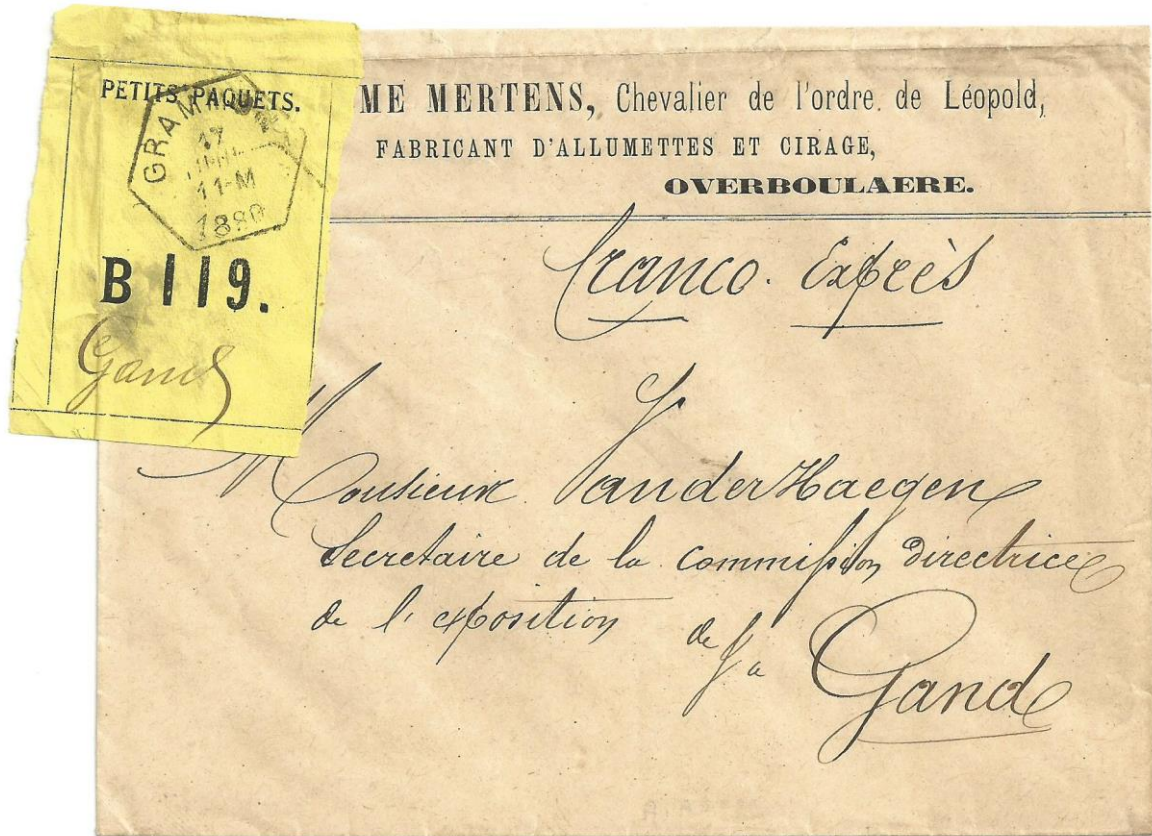 PETITS PAQUETS.
GRAM
17
11-M
1880
B 119.
Gand
ME MERTENS, Chevalier de l'ordre. de Léopold,
FABRICANT D'ALLUMETTES ET CIRAGE,
OVERBOULAERE.
franco. Exprès
Monsieur VanderHaegen
Secretaire de la commission directrice
de l'exposition de
à Gand